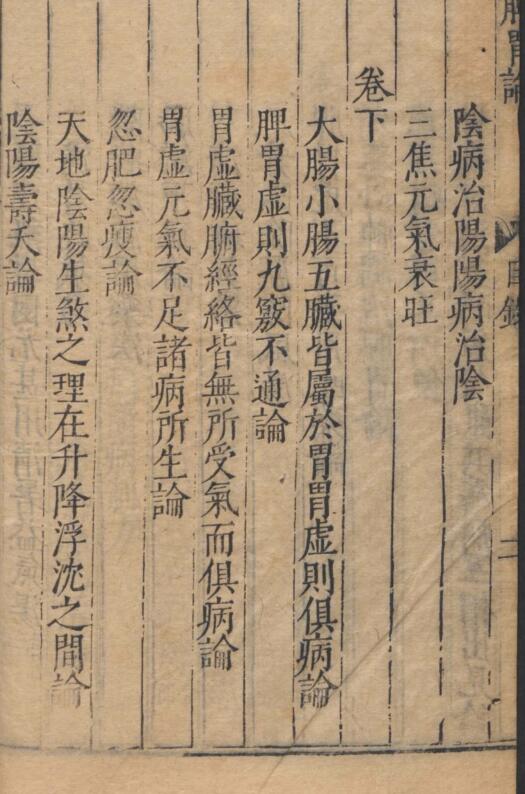 脾胃論 目錄 二
陰病治陽陽病治陰
三焦元氣衰旺
卷下
大腸小腸五臟皆屬於胃胃虛則俱病論
脾胃虛則九竅不通論
胃虛臟腑經絡皆無所受氣而俱病論
胃虛元氣不足諸病所生論
忽肥忽瘦論
天地陰陽生煞之理在升降浮沈之間論
陰陽壽夭論